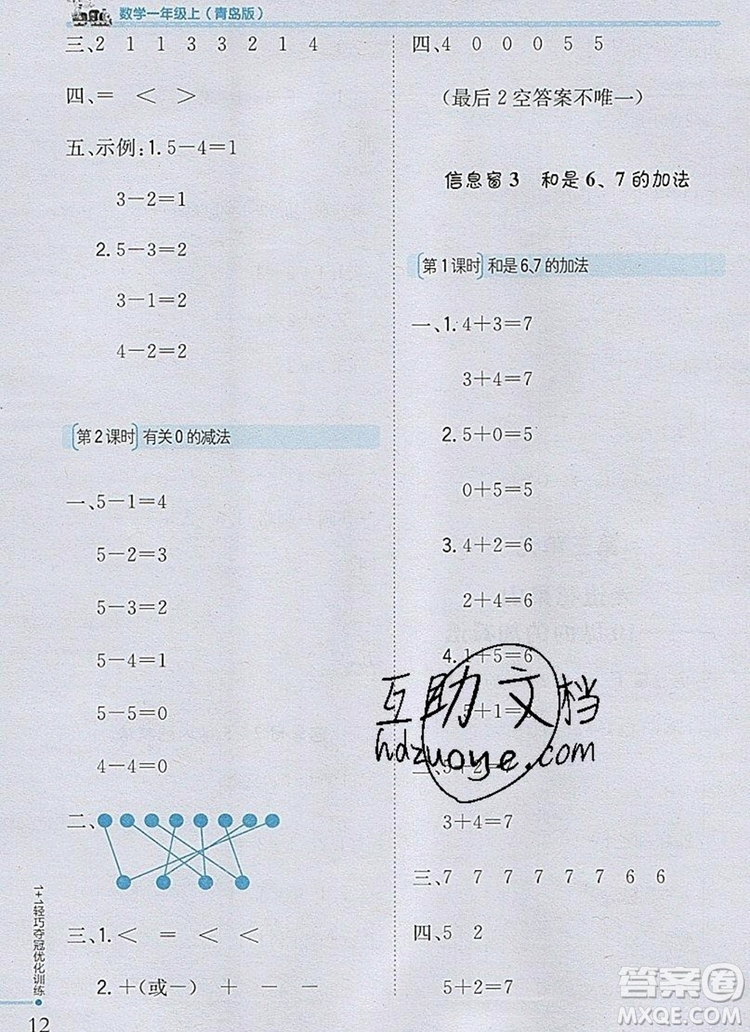 数学一年级上（青岛版）
三、2 1 1 3 3 2 1 4
四、＝ ＜ ＞
五、示例：1.5－4＝1
3－2＝1
2.5－3＝2
3－1＝2
4－2＝2
第2课时 有关0的减法
一、5－1＝4
5－2＝3
5－3＝2
5－4＝1
5－5＝0
4－4＝0
二、
三、1.＜ ＝ ＜ ＜
2.＋（或－） － － －
四、4 0 0 0 5 5
（最后2空答案不唯一）
信息窗3 和是6、7的加法
第1课时 和是6、7的加法
一、1.4＋3＝7
3＋4＝7
2.5＋0＝5
0＋5＝5
3.4＋2＝6
2＋4＝6
4.1＋5＝6
5＋1＝
5＋2＝
3＋4＝7
三、7 7 7 7 7 7 6 6
四、5 2
5＋2＝7
1+1轻巧夺冠优化训练
12
互助文档
hdzuoye.com
答案圈
MXQE.COM